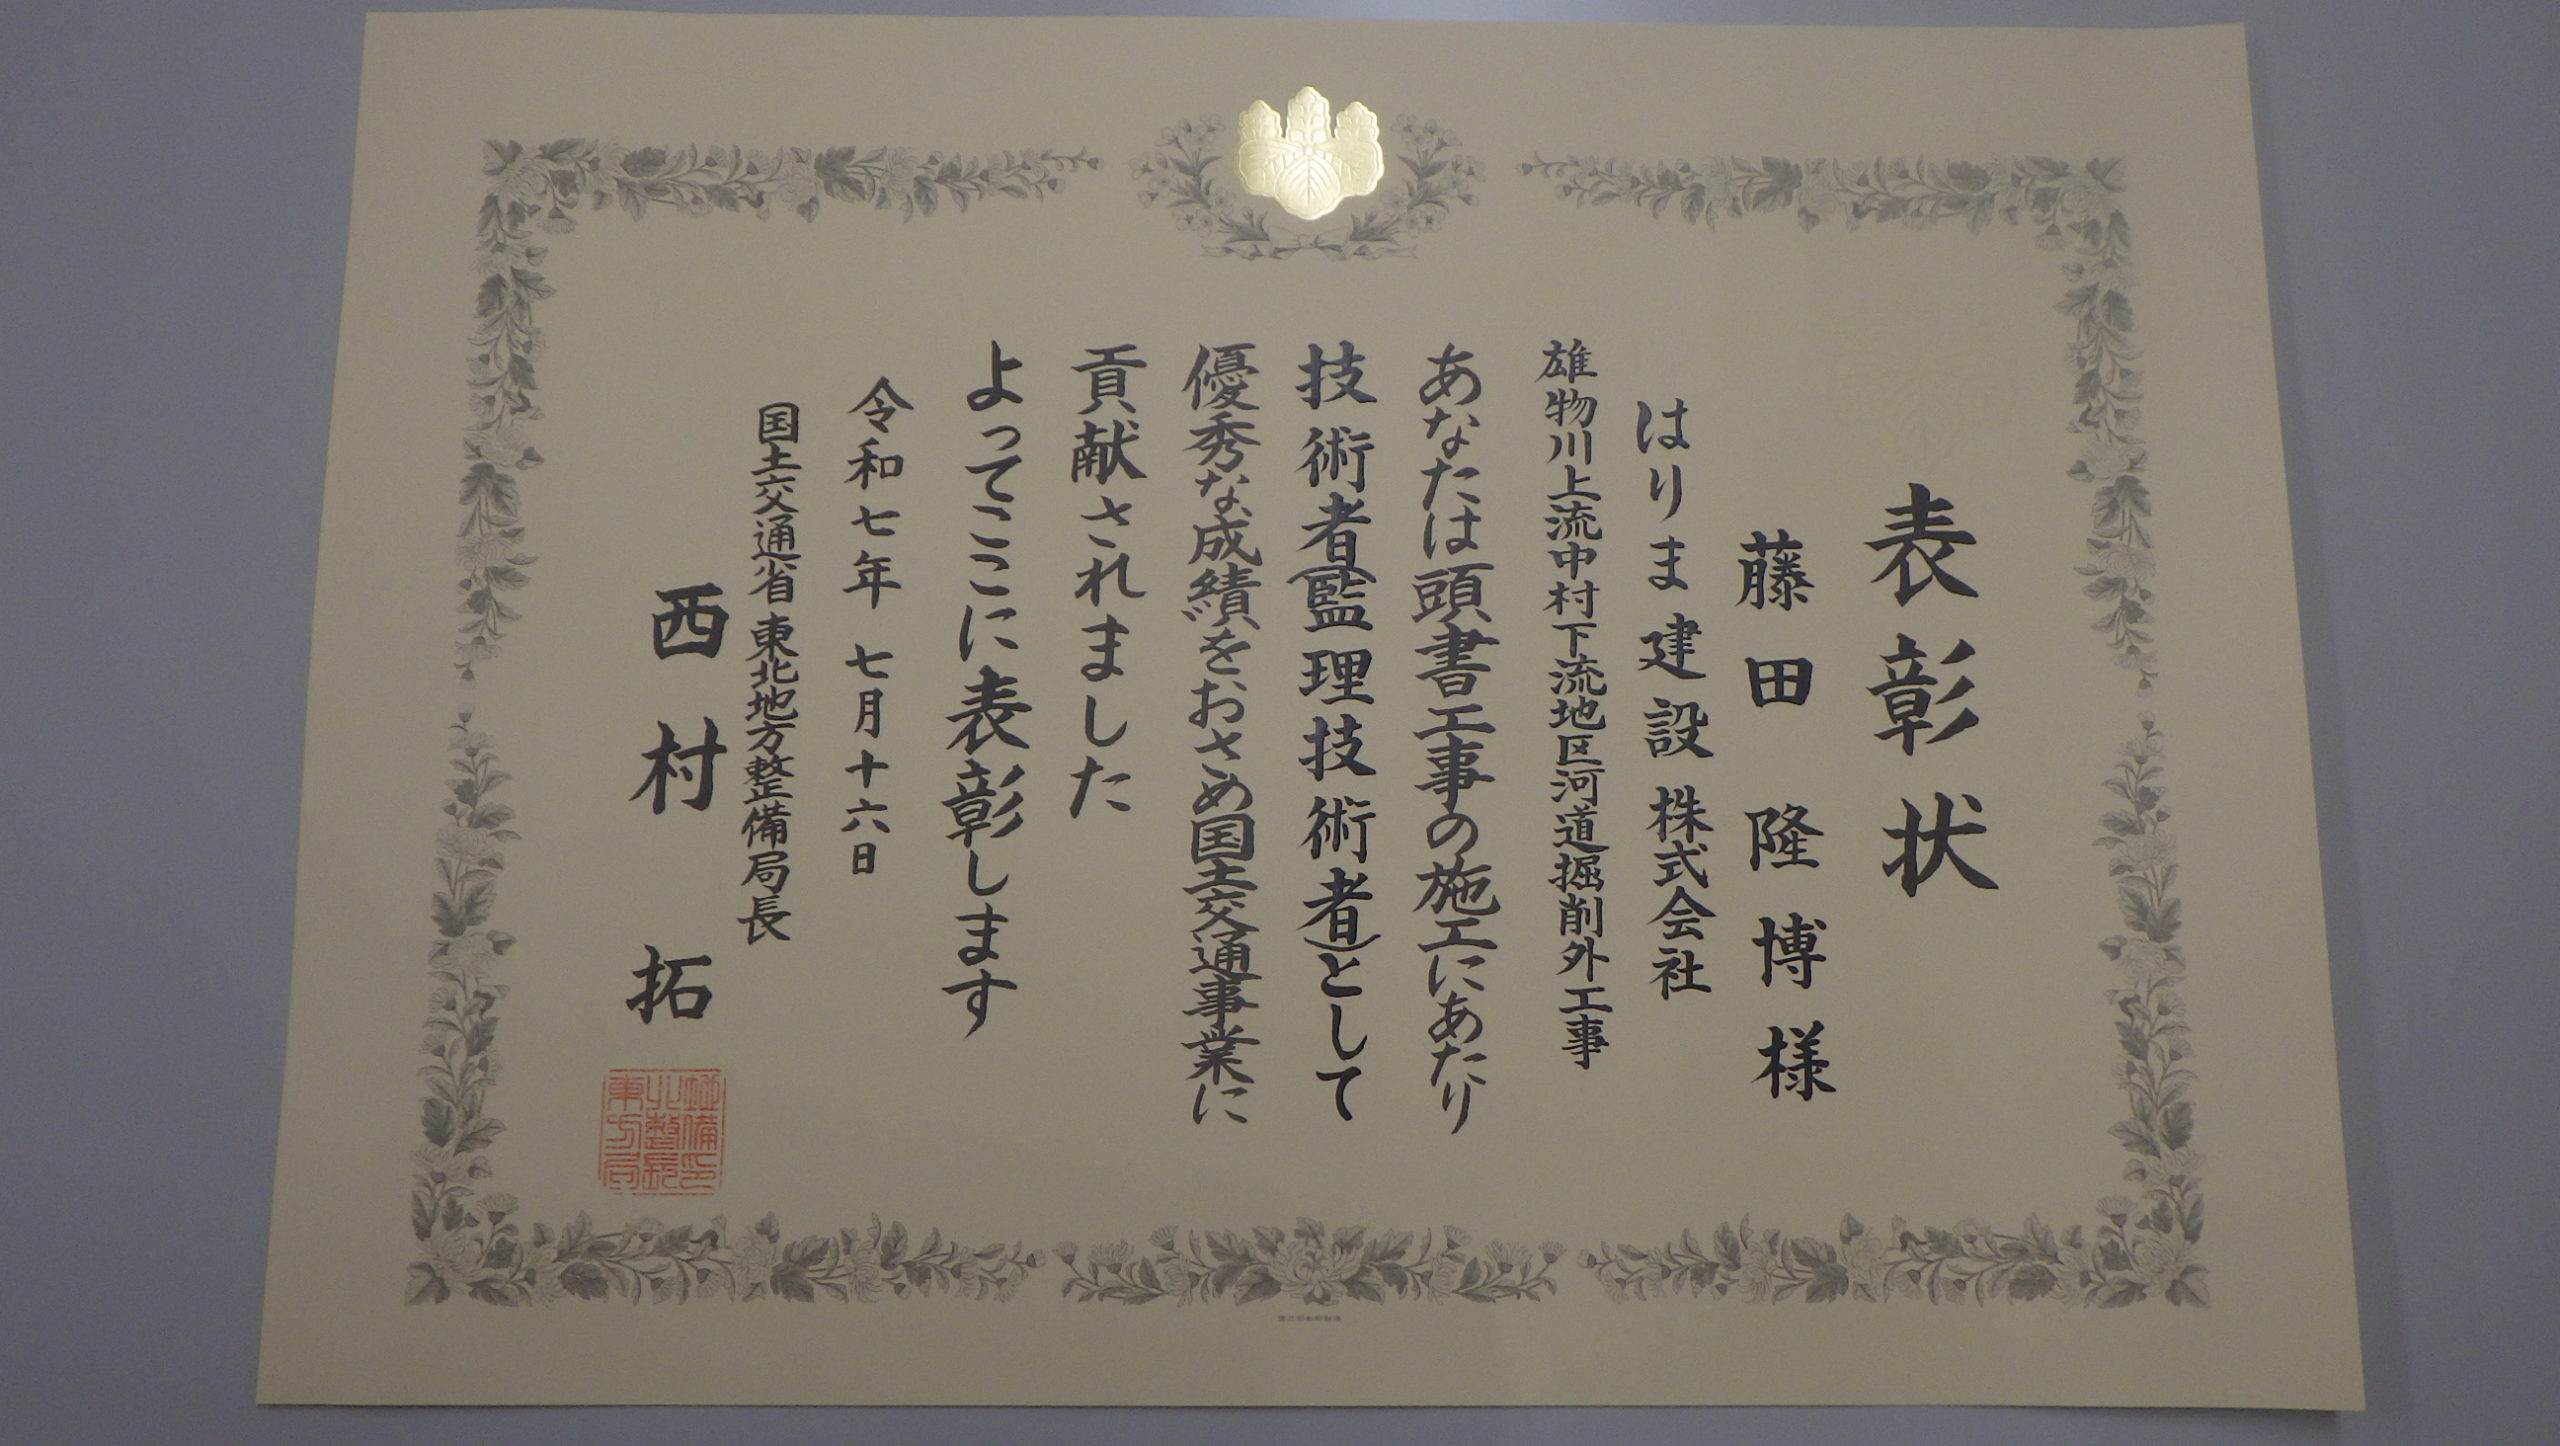 表彰状
藤田隆博様
はりま建設株式会社
雄物川上流中村下流地区河道掘削外工事
あなたは頭書工事の施工にあたり
技術者(監理技術者)として
優秀な成績をおさめ国土交通事業に
貢献されました
よってここに表彰します
令和七年七月十六日
国土交通省東北地方整備局長
西村拓